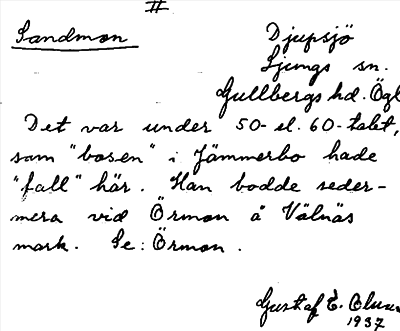 II
Sandmon
Djupsjö
Ljungs sn.
Gullbergs hd. Ögl
Det var under 50- el. 60-talet,
som "bosen" i Jämmerbo hade
"fall" här. Han bodde seder-
mera vid Örmon å Välnäs
mark. Se: Örmon.
Gustaf E.
1937